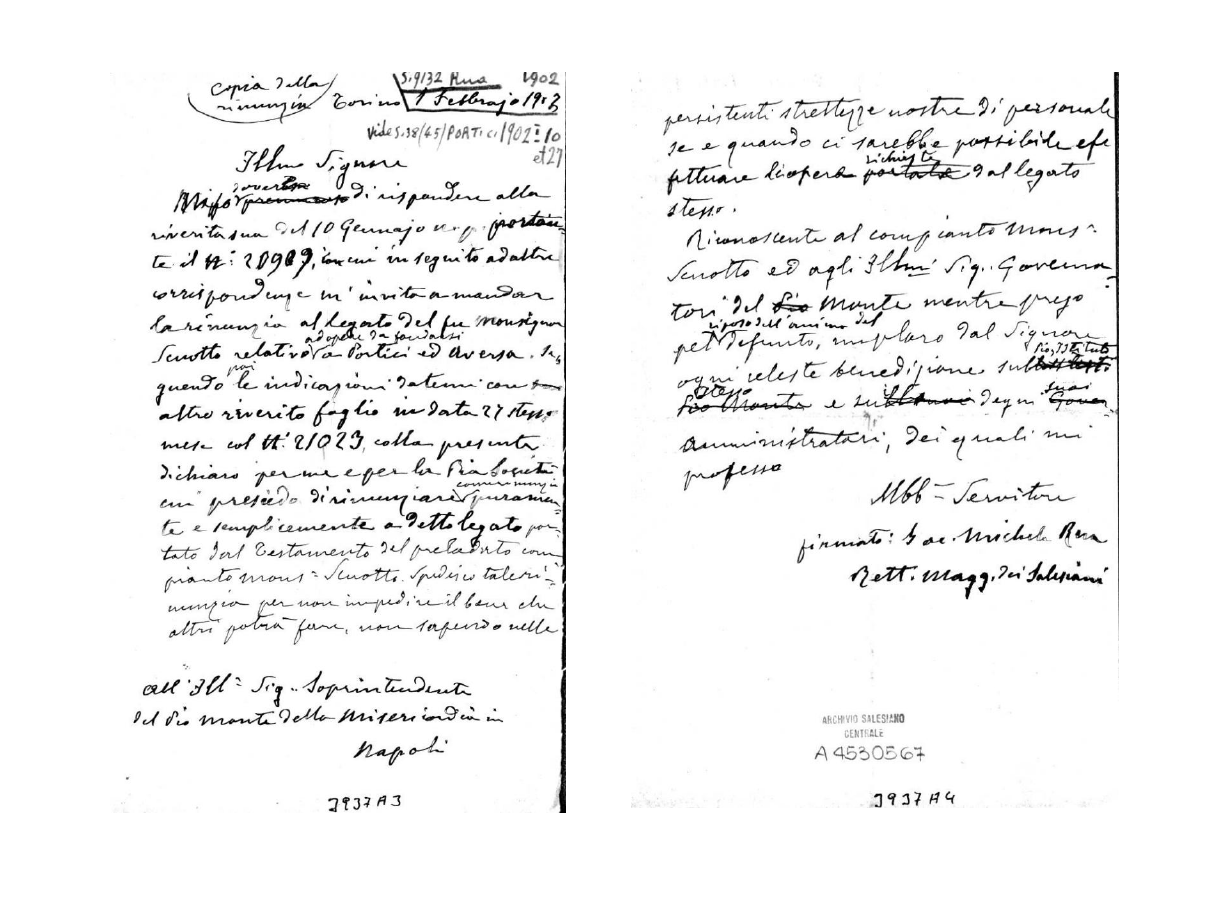 copia della
rinunzia
S.9132 Rua 1902
Torino 1 Febbrajo 1902
Vide S.38(45)PORTICI 1902 I 10
et 27
Illmo Signore
di rispondere alla
riverita sua del 10 Gennajo u. p. portan-
te il N: 20909, con cui in seguito ad altre
corrispondenze m'invita a mandar
la rinunzia al legato del fu Monsignor
ad opere da fondarsi
Scuotto relativo a Portici ed Aversa. Se-
poi
guendo le indicazioni datemi con
altro riverito foglio in data 27 stesso
mese col N: 21023, colla presente
dichiaro per me e per la Pia Società
cui presiedo di rinunziare puramen-
te e semplicemente a detto legato por-
tato dal Testamento del prelodato com-
pianto Mons= Scuotto. Spedisco tale ri-
nunzia per non impedire il bene che
altri potrà fare, non sapendo nelle
All' Ill= Sig. Soprintendente
del Pio Monte della Misericordia in
Napoli
J937A3
persistenti strettezze nostre di personale
se e quando ci sarebbe possibile efe
richieste
fettuare l'opera portata dal legato
stesso.
Riconoscente al compianto Mons=
Scuotto ed agli Illmi Sig. Governa-
tori del Pio Monte mentre prego
riposo dell'anima del
pel defunto, imploro dal Signore
Pio Istituto
ogni celeste benedizione sul
stesso suoi
Pio Monte e su degni Gover-
amministratori, dei quali mi
professo
Obb= Servitore
firmato: Sac. Michele Rua
Rett. Magg. dei Salesiani
ARCHIVIO SALESIANO
CENTRALE
A 4530567
J937A4